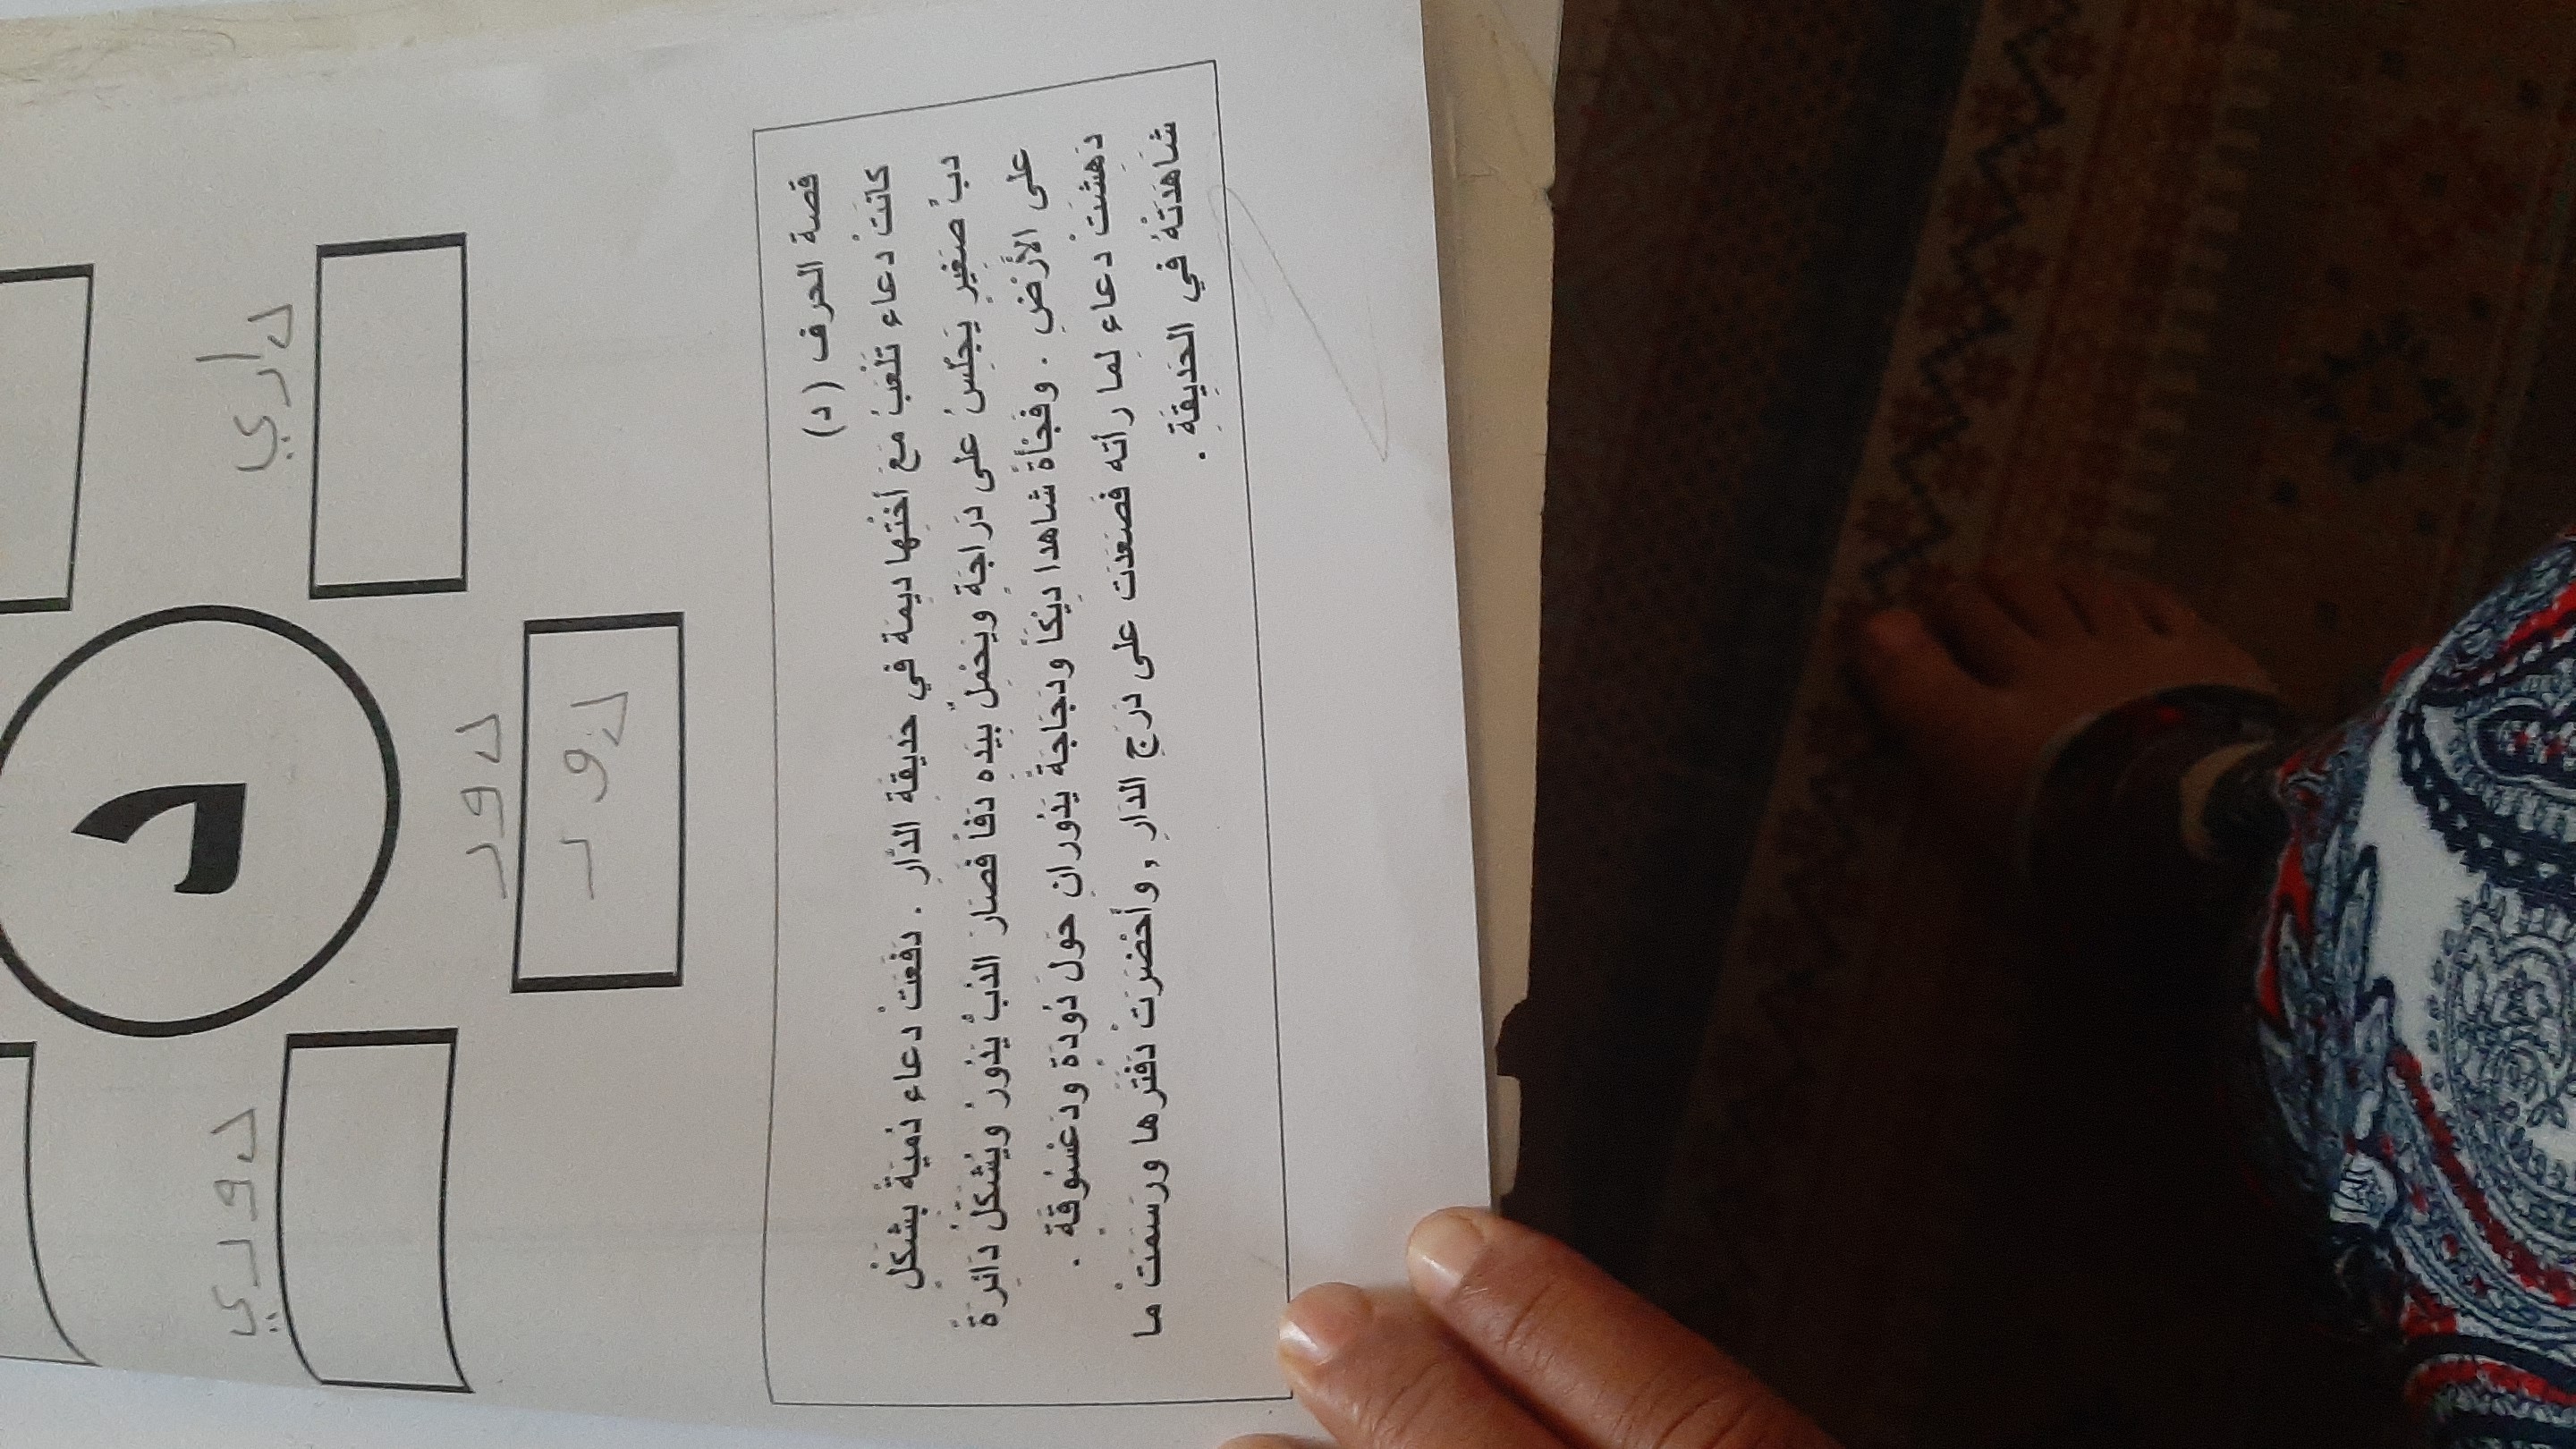 د
داري
دوري
دور
دور
قصة الحرف (د)
كانَتْ دعاء تَلْعَبُ مَعَ أخْتِها ديِمَة في حَديقَةِ الدَّارِ . دَفَعَتْ دعاء دُميَةً بشكَلْ
دبْ صَغيرِ يَجلِسُ على دَراجَةٍ ويَحْمِلْ بيَدِه دَفاً فَصَارَ الدُبْ يَدُورُ ويُشَكّلُ دَائِرةً
على الأرْضِ . وفَجْأةً شاهدا دِيْكَاً ودَجَاجَةً يَدُورانِ حَولَ دُودَة ودَعْسُوقَة .
دَهِشَتْ دعاء لِما رأته فَصَعَدَت على دَرَجِ الدَارِ , وأحْضَرَتْ دَفْتَرها ورَسَمَتْ ما
شَاهَدَتْهُ في الحَديقَةِ .